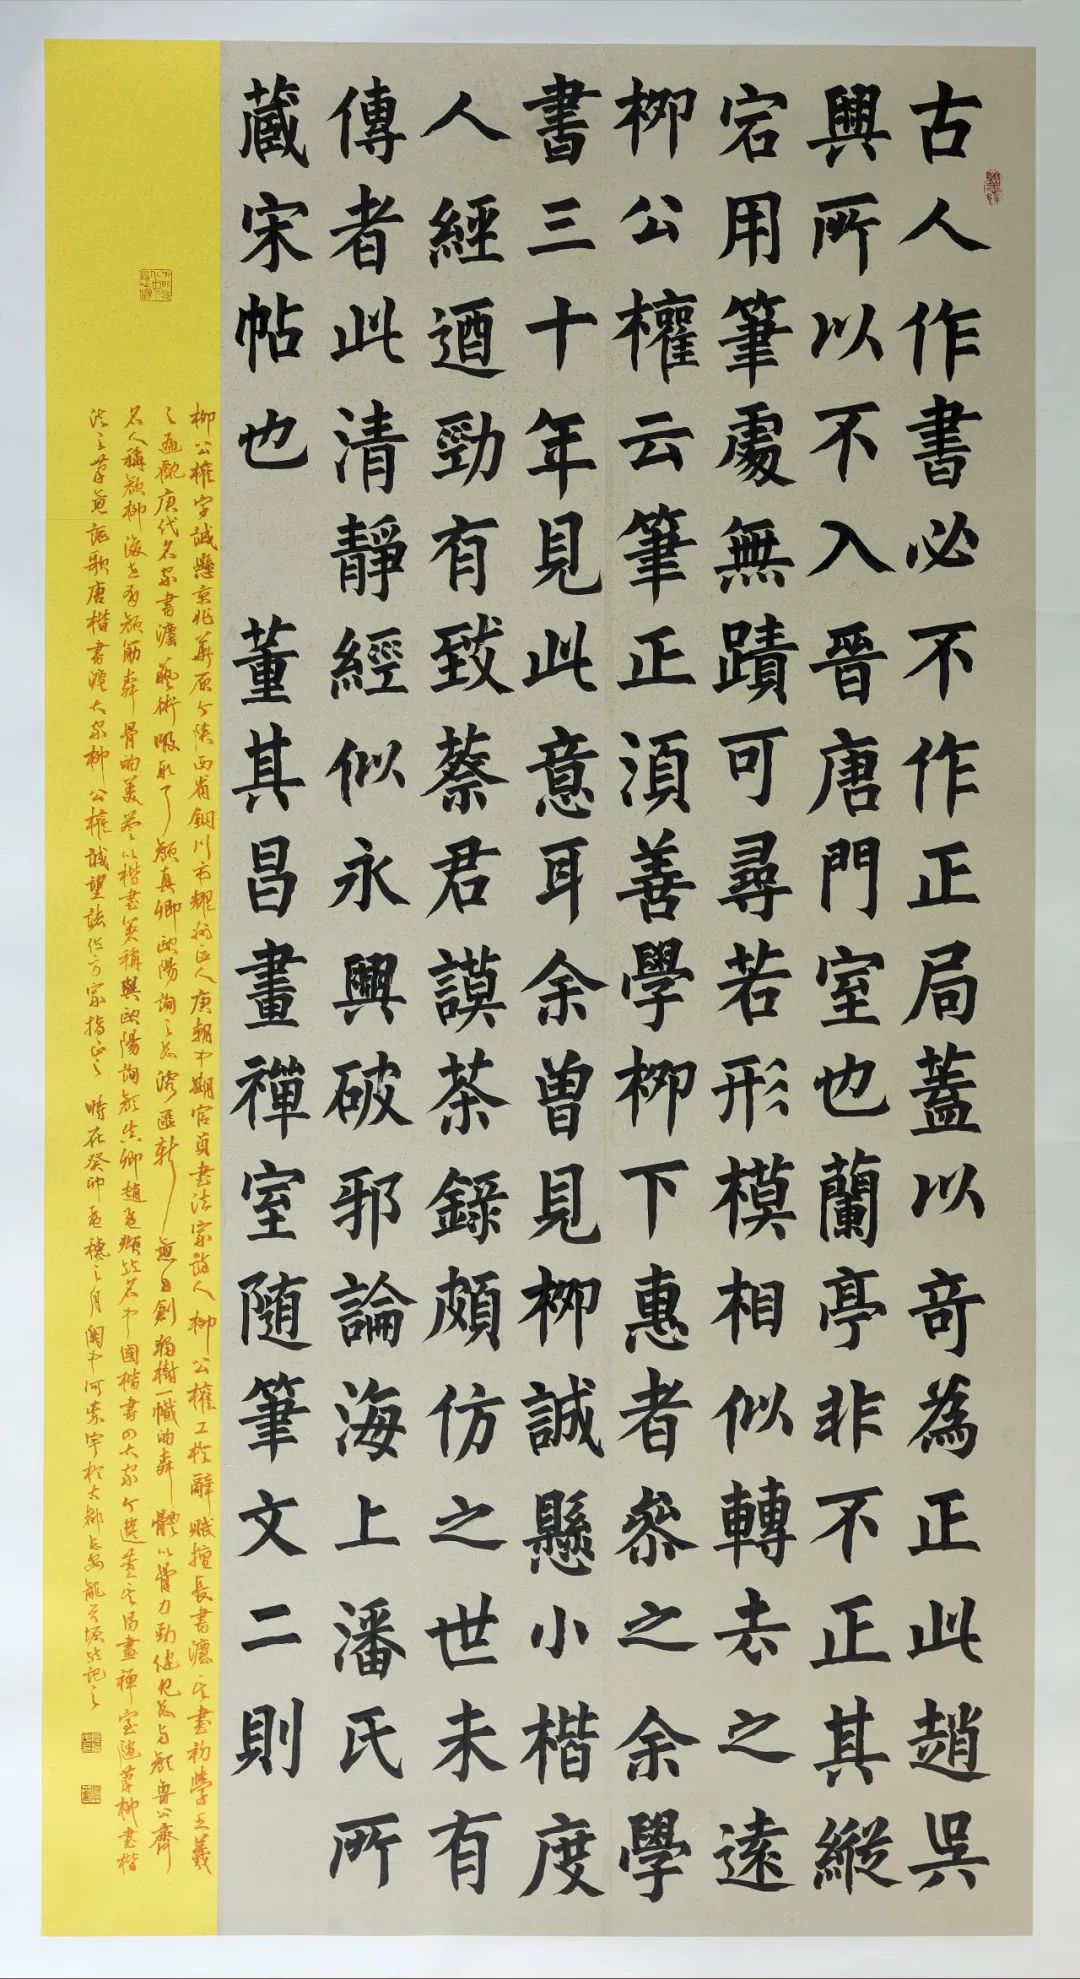 古人作書必不作正局蓋以奇為正此趙吳
興所以不入晉唐門室也蘭亭非不正其縱
宕用筆處無蹟可尋若形模相似轉去之遠
柳公權云筆正須善學柳下惠者參之余學
書三十年見此意耳余曾見柳誠懸小楷度
人經遒勁有致蔡君謨茶錄頗仿之世未有
傳者此清靜經似永興破邪論海上潘氏所
藏宋帖也 董其昌畫禪室随筆文二則
柳公權字誠懸京兆華原今陝西省銅川市耀州區人唐朝中期官員書法家詩人柳公權工於辭賦擅長書灋其書初學王羲
之遍觀唐代名家書灋藝術吸取了顏真卿歐陽詢之長溶匯新意自創獨樹一幟的柳體以骨力勁健見長与顏魯公齊
名人稱顏柳後世有顏筋柳骨的美譽以楷書並稱與歐陽詢顏真卿趙孟頫名中國楷書四大家今選董其昌畫禪室隨筆柳書楷
法之謳歌唐楷書灋大家柳公權誠望諸位方家指正之 時在癸卯孟穐之月關中何東宇於古都長安龍首塬記之